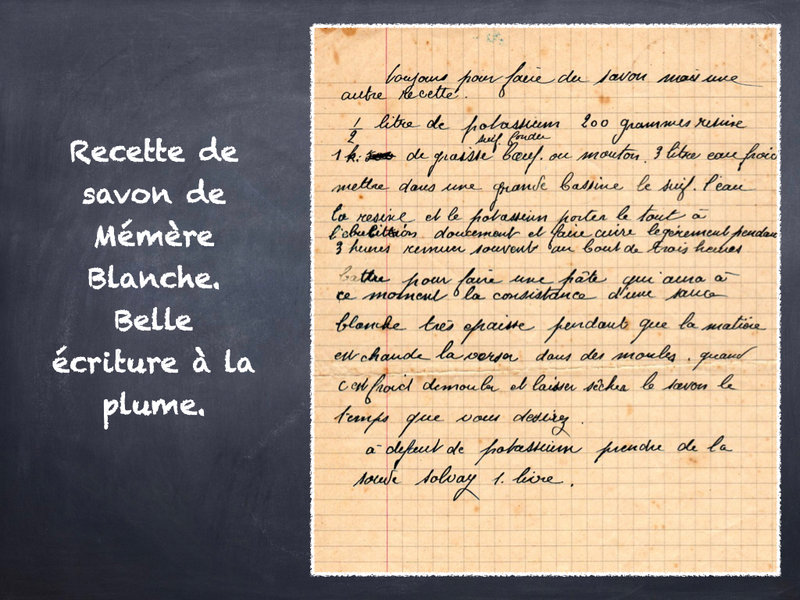 Recette de
savon de
Mémère
Blanche.
Belle
écriture à la
plume.
toujours pour faire du savon mais une
autre recette.
1/2 litre de potassium 200 grammes resine
suif fondu
1 k. de graisse bœuf. ou mouton. 3 litre eau froid
mettre dans une grande bassine le suif. l'eau
la resine et le potassium porter le tout à
l'ebulition doucement et faire cuire legèrement pendan
3 heures remuer souvent au bout de trois heures
battre pour faire une pâte qui aura à
ce moment la consistance d'une sauce
blanche très epaisse pendant que la matière
est chaude la verser dans des moules. quand
c est froid demouler et laisser sècher le savon le
temps que vous desirez.
à defaut de potassium prendre de la
soude solvay 1. livre.